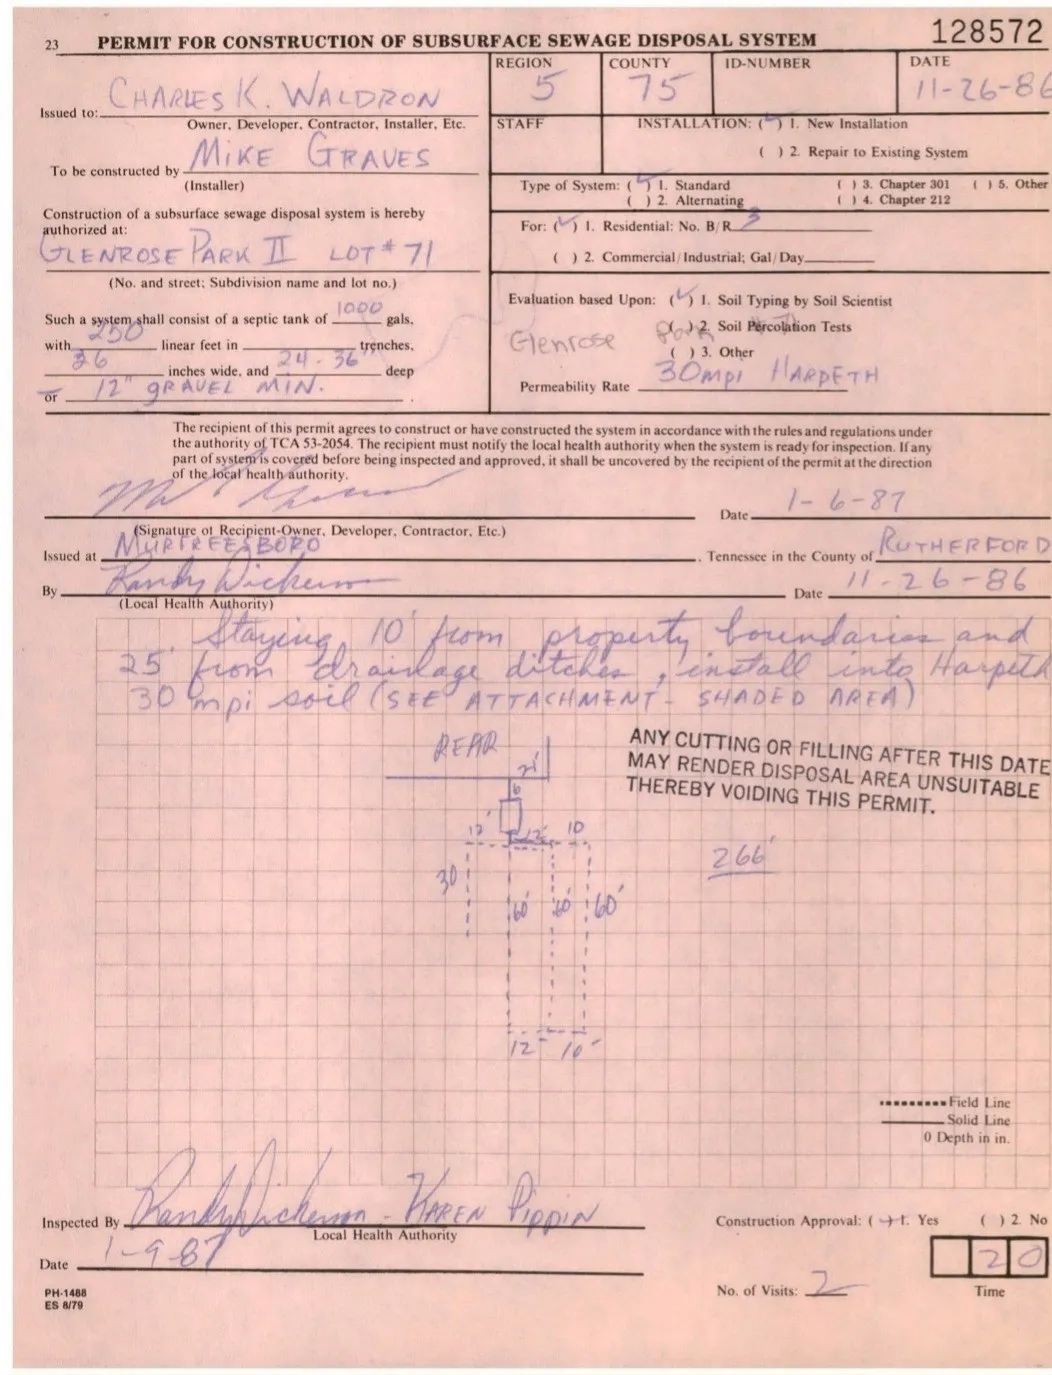 23 PERMIT FOR CONSTRUCTION OF SUBSURFACE SEWAGE DISPOSAL SYSTEM 128572
Issued to: CHARLES K. WALDRON
Owner, Developer, Contractor, Installer, Etc.
To be constructed by MIKE GRAVES
(Installer)
Construction of a subsurface sewage disposal system is hereby
authorized at:
GLENROSE PARK II LOT # 71
(No. and street; Subdivision name and lot no.)
Such a system shall consist of a septic tank of 1000 gals.
with 250 linear feet in trenches,
36 inches wide, and 24-36" deep
or 12" gRAVEL MIN.
REGION 5
COUNTY 75
ID-NUMBER
DATE 11-26-86
STAFF
INSTALLATION: (✓) 1. New Installation
( ) 2. Repair to Existing System
Type of System: (✓) 1. Standard ( ) 3. Chapter 301 ( ) 5. Other
( ) 2. Alternating ( ) 4. Chapter 212
For: (✓) 1. Residential: No. B/R 3
( ) 2. Commercial/Industrial; Gal/Day
Evaluation based Upon: (✓) 1. Soil Typing by Soil Scientist
( ) 2. Soil Percolation Tests
Glenrose Park
( ) 3. Other
Permeability Rate 30mpi HARPETH
The recipient of this permit agrees to construct or have constructed the system in accordance with the rules and regulations under
the authority of TCA 53-2054. The recipient must notify the local health authority when the system is ready for inspection. If any
part of system is covered before being inspected and approved, it shall be uncovered by the recipient of the permit at the direction
of the local health authority.
Date 1-6-87
(Signature of Recipient-Owner, Developer, Contractor, Etc.)
Issued at MURFREESBORO . Tennessee in the County of RUTHERFORD
By Randy Dickerson Date 11-26-86
(Local Health Authority)
Staying 10' from property boundaries and
25' from drainage ditches, install into Harpeth
30 mpi soil (SEE ATTACHMENT - SHADED AREA)
ANY CUTTING OR FILLING AFTER THIS DATE
MAY RENDER DISPOSAL AREA UNSUITABLE
THEREBY VOIDING THIS PERMIT.
REAR
21'
6
12' 12' 10
266'
30
60' 60' 60'
12' 10'
Field Line
Solid Line
0 Depth in in.
Inspected By Randy Dickerson - KAREN PIPPIN
Local Health Authority
Construction Approval: (+) 1. Yes ( ) 2. No
Date 1-9-87
No. of Visits: 2
20
Time
PH-1488
ES 8/79